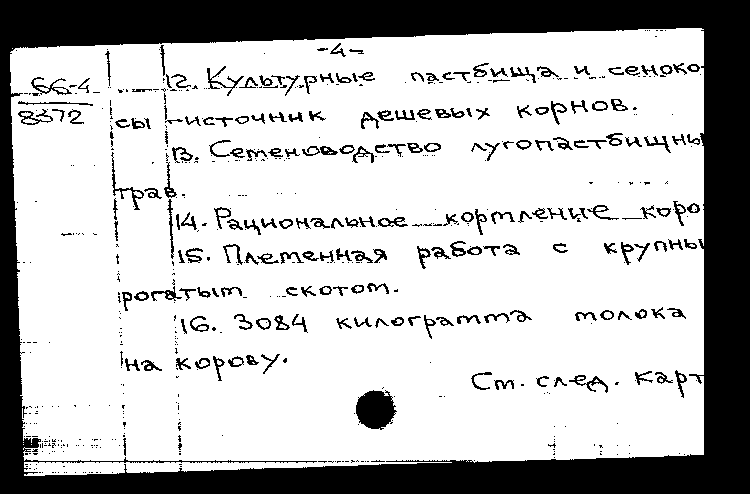 -4-
66-4
8372
12. Культурные пастбища и сеноко-
сы - источник дешевых кормов.
13. Семеноводство лугопастбищны
трав.
14. Рациональное кормление коро
15. Племенная работа с крупны
рогатым скотом.
16. 3084 килограмма молока
на корову.
См. след. карт